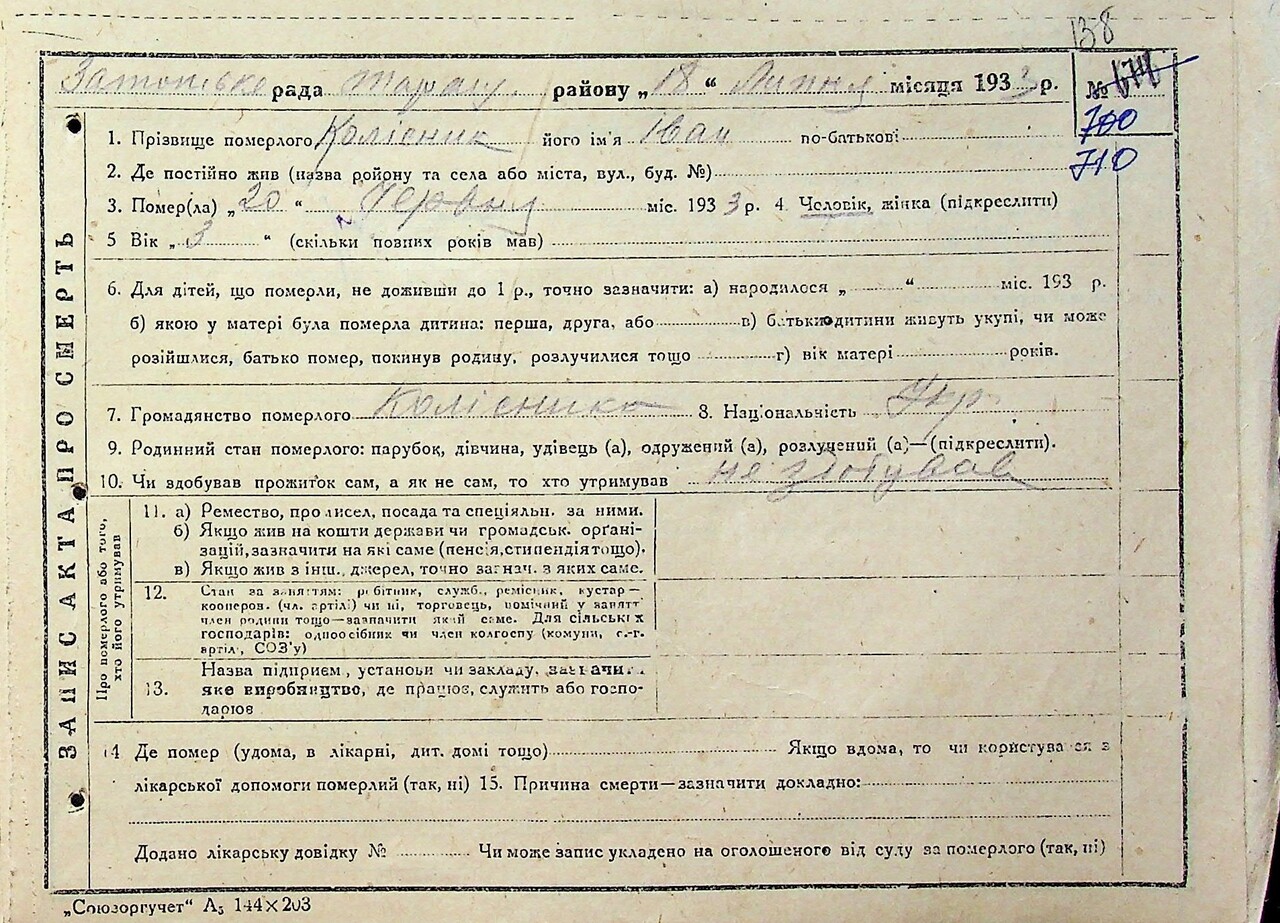 138
рада району „18“ Липня місяця 1933 р. №
700
1. Прізвище померлого Колісник його ім'я Іван по-батькові
710
2. Де постійно жив (назва ройону та села або міста, вул., буд. №)
3. Помер(ла) „20“ Червня міс. 1933 р. 4. Чоловік, жінка (підкреслити)
5 Вік „3“ (скільки повних років мав)
6. Для дітей, що померли, не доживши до 1 р., точно зазначити: а) народилося „ “ міс. 193 р.
б) якою у матері була померла дитина: перша, друга, або в) батьки дитини живуть укупі, чи може
розійшлися, батько помер, покинув родину, розлучилися тощо г) вік матері років.
7. Громадянство померлого 8. Національність Укр
9. Родинний стан померлого: парубок, дівчина, удівець (а), одружений (а), розлучений (а)—(підкреслити).
10. Чи здобував прожиток сам, а як не сам, то хто утримував не здобував
ЗАПИС АКТА ПРО СМЕРТЬ
Про померлого або того,
хто його утримував
11. а) Ремество, промисел, посада та спеціяльн. за ними.
б) Якщо жив на кошти держави чи громадськ. орґані-
зацій, зазначити на які саме (пенсія, стипендія тощо).
в) Якщо жив з інш. джерел, точно загнач. з яких саме.
12. Стан за заняттям: робітник, служб., ремісник, кустар—
кооперов. (чл. артілі) чи ні, торговець, помічний у занятт
член родини тощо—зазначити який саме. Для сільських
господарів: одноосібник чи член колгоспу (комуни, с.-г.
артіл., СОЗ'у)
13. Назва підприєм., установи чи закладу, зазначит.
яке виробництво, де працює, служить або госпо-
дарює
14 Де помер (удома, в лікарні, дит. домі тощо) Якщо вдома, то чи користувався з
лікарської допомоги померлий (так, ні) 15. Причина смерти—зазначити докладно:
Додано лікарську довідку № Чи може запис укладено на оголошеного від суду за померлого (так, ні)
„Союзоргучет“ А₅ 144×203